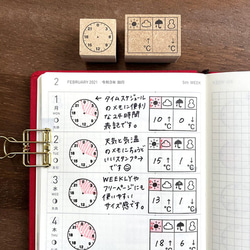 2 FEBRUARY 2021 令和3年 如月 5th WEEK
1
月
←タイムスケジュール
のメモに便利
な24時間
表記です。
10 0
℃ ℃
2
火
天気と気温
のメモにちょうど
いいスタンプ
です☺
15 1
℃ ℃
3
水
WEEKLYや
フリーページにも
使いやすい
サイズ感です。
13 1
℃ ℃
4
木
18 6
℃ ℃